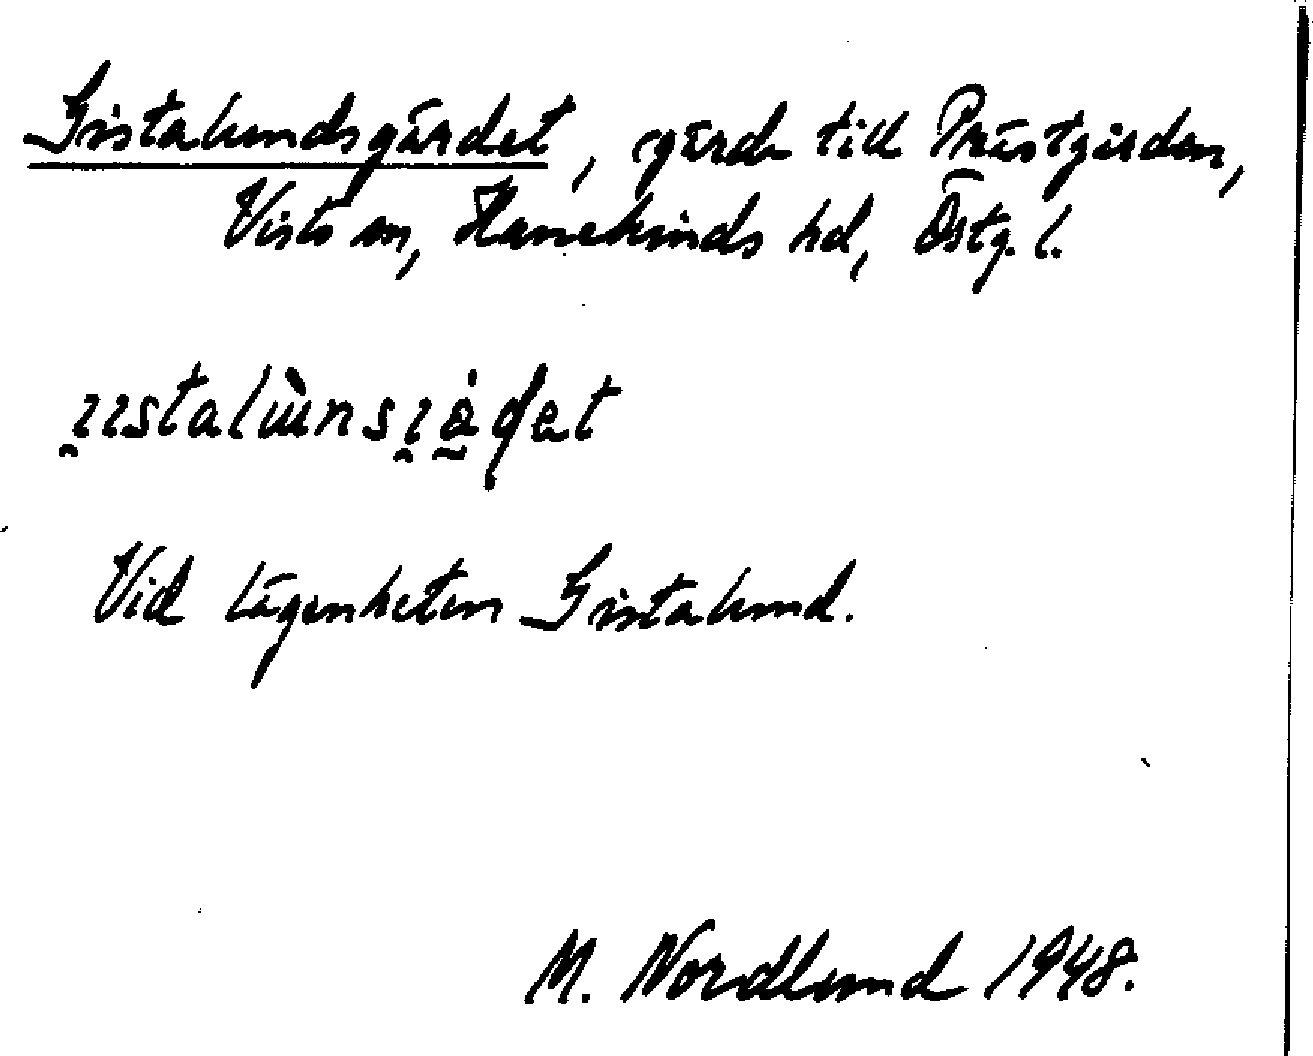 Gistalundsgärdet, gärde till Prästgården,
Vists sn, Hanekinds hd, Östg. l.
Vid lägenheten Gistalund.
M. Nordlund 1948.